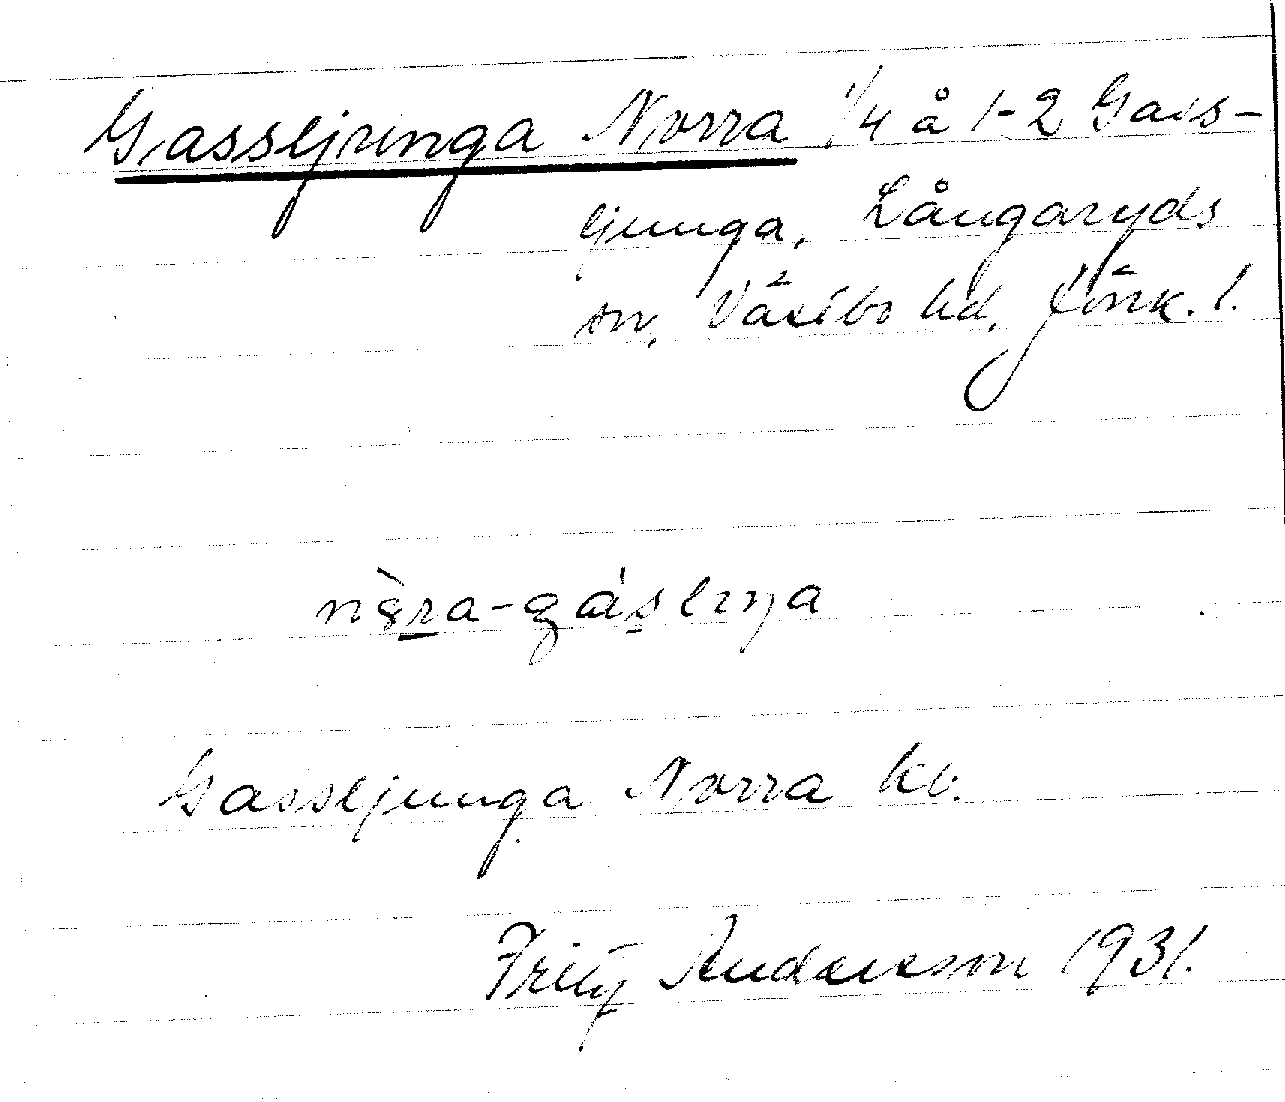 Gassljunga Norra 1/4 å 1-2 Gass-
ljunga, Långaryds
sn, Västbo hd, Jönk. l.
Gassljunga Norra kb.
Fritz Andersson 1931.